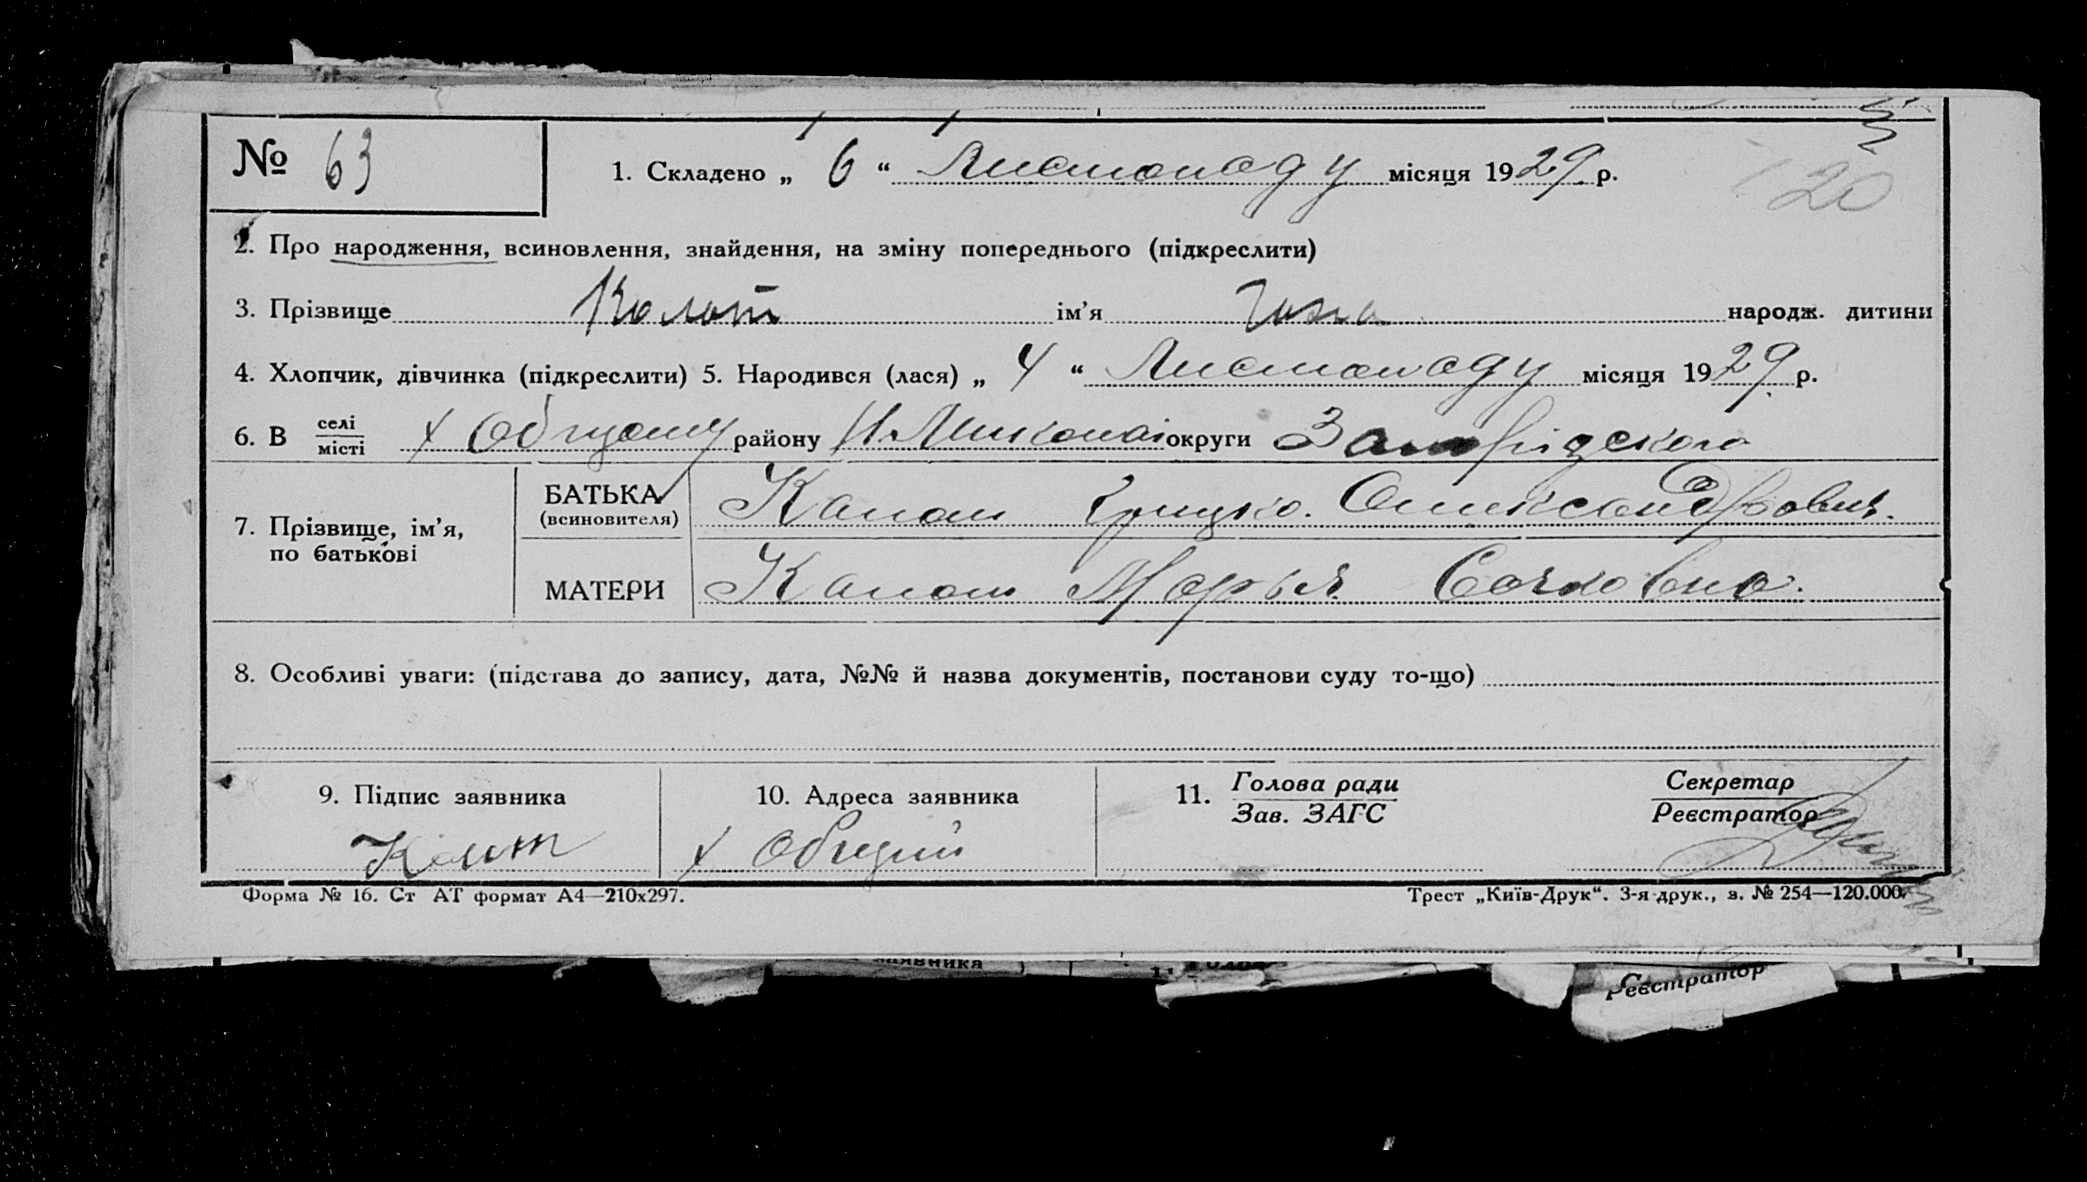 № 63
1. Складено „ 6 “ Листопаду місяця 1929 р.
120
2. Про народження, всиновлення, знайдення, на зміну попереднього (підкреслити)
3. Прізвище ім’я народж. дитини
4. Хлопчик, дівчинка (підкреслити) 5. Народився (лася) „ 4 “ Листопаду місяця 1929 р.
6. В селі місті х Общому району округи
7. Прізвище, ім’я, по батькові
БАТЬКА (всиновителя) Грицько Олександрович
МАТЕРИ Марья
8. Особливі уваги: (підстава до запису, дата, №№ й назва документів, постанови суду то-що)
9. Підпис заявника
10. Адреса заявника
х Общий
11. Голова ради
Зав. ЗАГС
Секретар
Реєстратор
Форма № 16. Ст АТ формат А4—210х297.
Трест „Київ-Друк“. 3-я друк., з. № 254—120.000.
заявника
Реєстратор